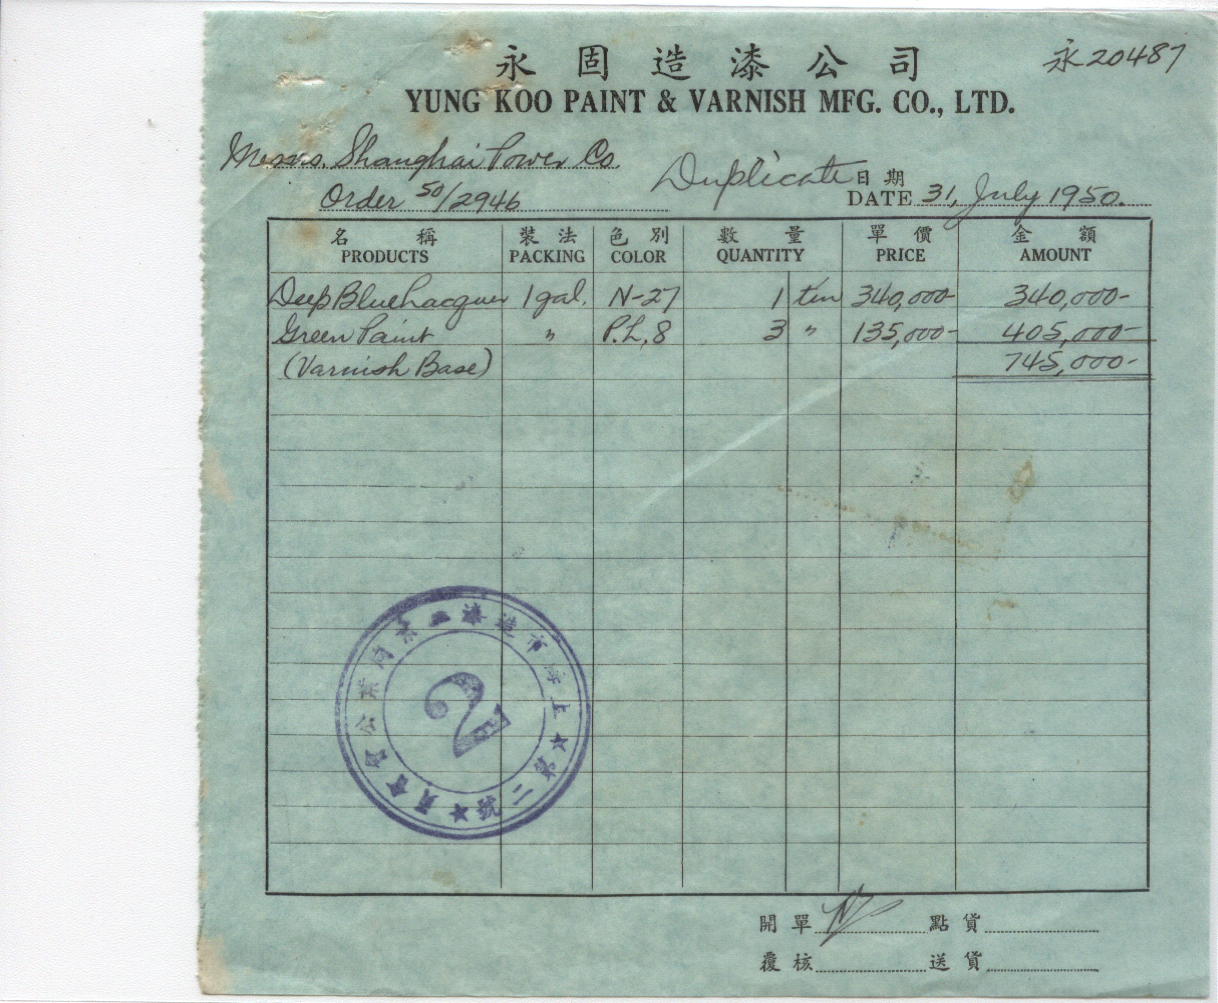 永固造漆公司
永20487
YUNG KOO PAINT & VARNISH MFG. CO., LTD.
Messrs. Shanghai Power Co.
Duplicate
日期
Order 50/2946
DATE 31, July 1950.
名稱 裝法 色別 數量 單價 金額
PRODUCTS PACKING COLOR QUANTITY PRICE AMOUNT
Deep Blue Lacquer 1 gal. N-27 1 tin 340,000- 340,000-
Green Paint " P.L, 8 3 " 135,000- 405,000-
(Varnish Base) 745,000-
上海市造漆工業同業公會會員
2
第二號
開單 點貨
覆核 送貨